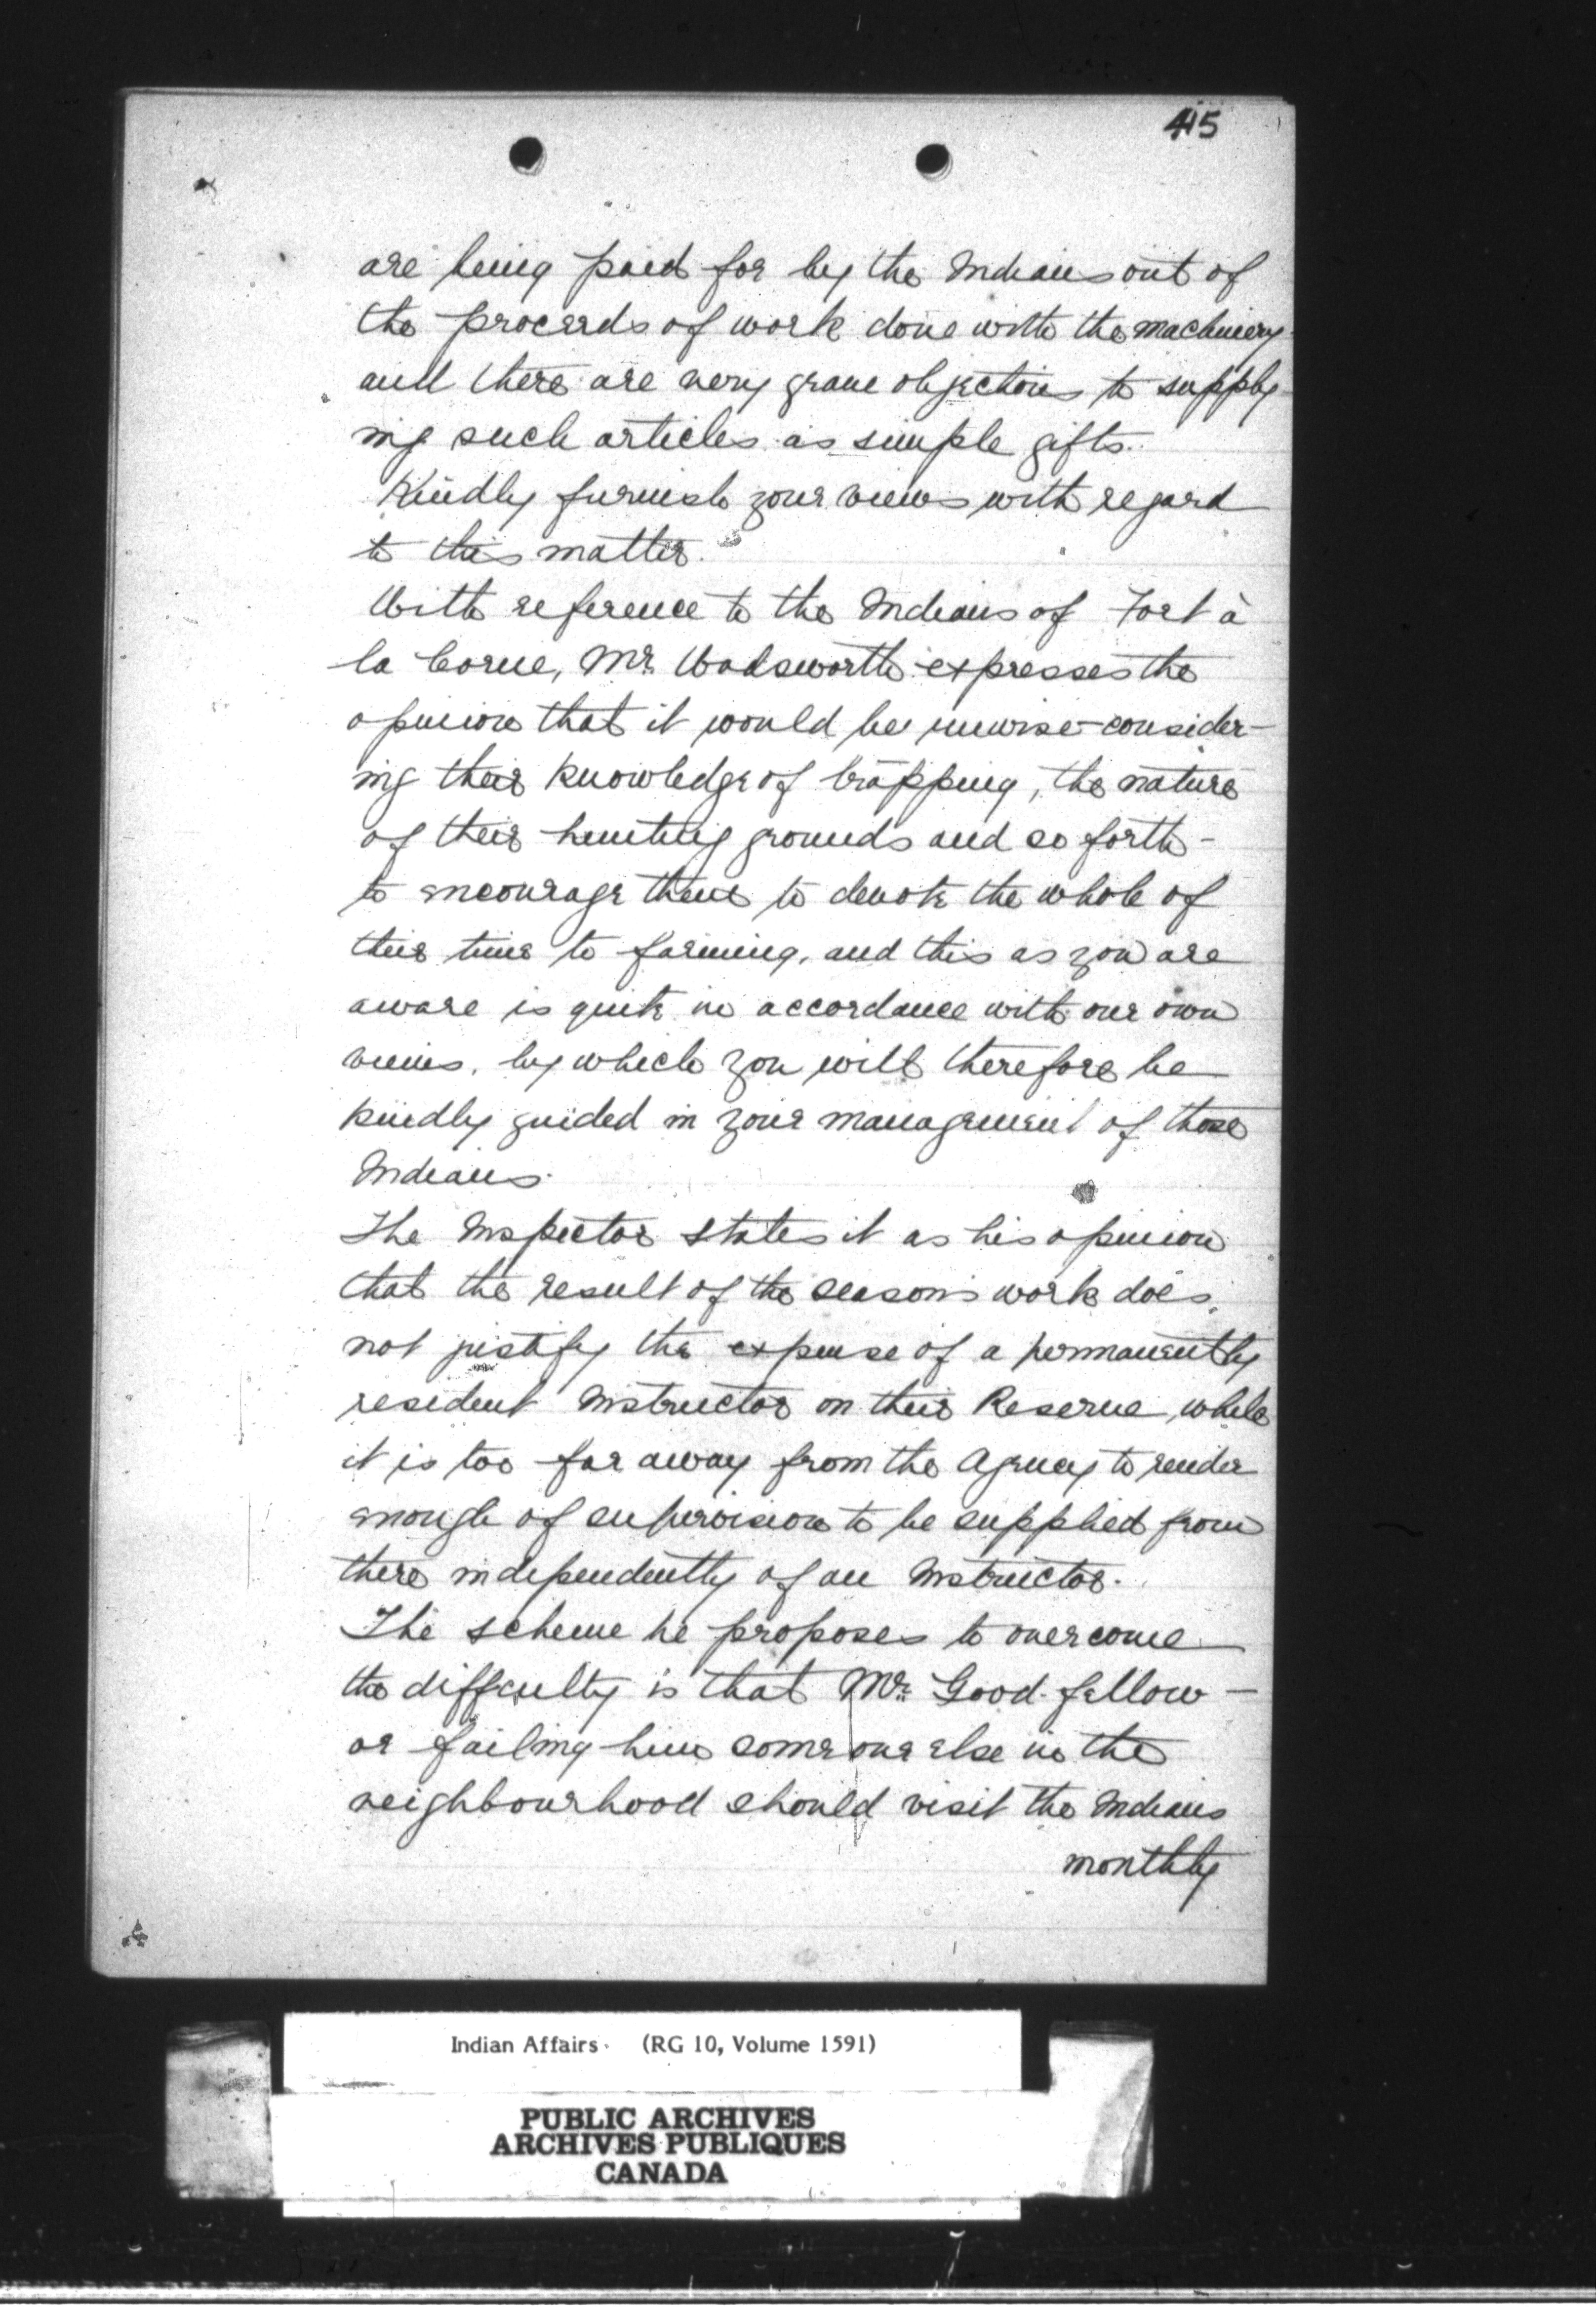 415
are being paid for by the Indians out of
the proceeds of work done with the machinery
and there are very grave objections to supply-
ing such articles as simple gifts.
Kindly furnish your views with regard
to this matter.
With reference to the Indians of Fort à
la Corne, Mr. Wadsworth expresses the
opinion that it would be unwise - consider-
ing their knowledge of trapping, the nature
of their hunting grounds and so forth -
to encourage them to devote the whole of
their time to farming, and this as you are
aware is quite in accordance with our own
views, by which you will therefore be
kindly guided in your management of those
Indians.
The Inspector states it as his opinion
that the result of the seasons work does
not justify the expense of a permanently
resident Instructor on their Reserve, while
it is too far away from the Agency to render
enough of supervision to be supplied from
there independently of an Instructor.
The scheme he proposes to overcome
the difficulty is that Mr. Good-fellow -
or failing him some one else in the
neighbourhood should visit the Indians
monthly
Indian Affairs. (RG 10, Volume 1591)
PUBLIC ARCHIVES
ARCHIVES PUBLIQUES
CANADA